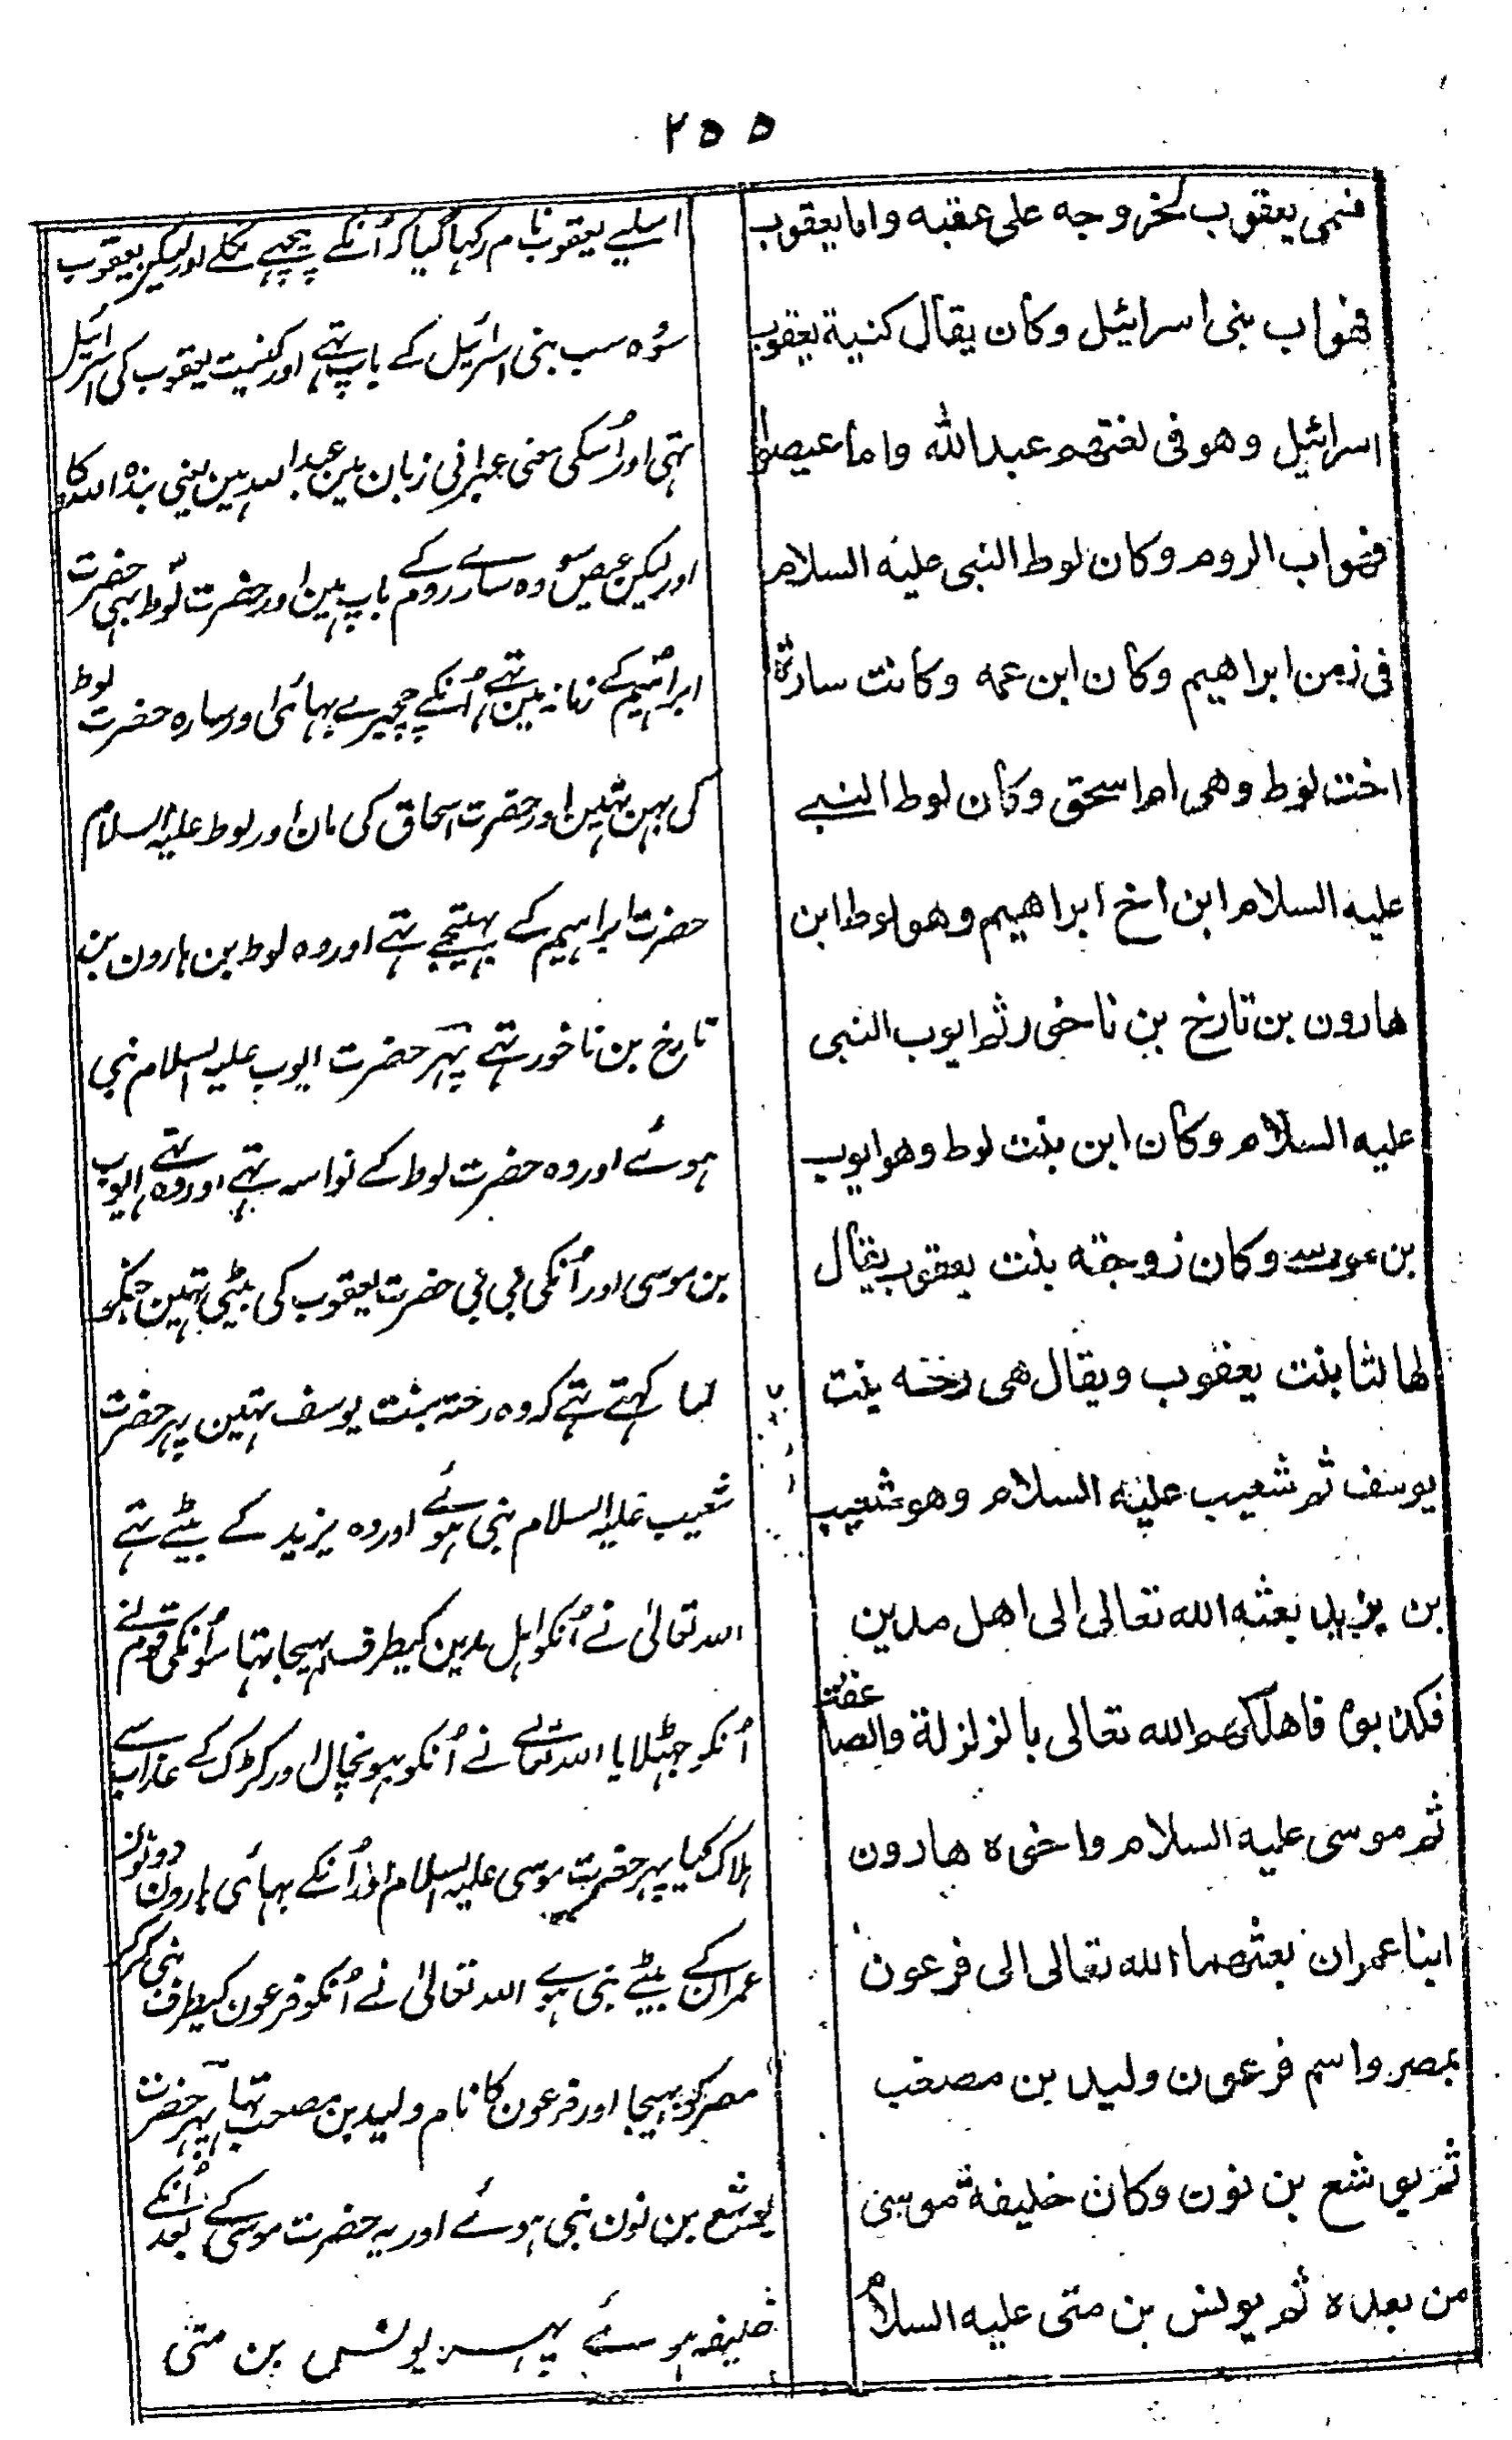 ٢٥٥
فسمی یعقوب لخروجه علی عقبه واما یعقوب
فهو اب بنی اسرائیل وکان یقال کنیة یعقوب
اسرائیل وهو فی لغتهم عبد الله واما عیصوا
فهو اب الروم وکان لوط النبی علیه السلام
فی زمن ابراهیم وکان ابن عمه وکانت سارة
اخت لوط وهی ام اسحق وکان لوط النبے
علیه السلام ابن اخ ابراهیم وهو لوط ابن
هارون بن تارخ بن ناخور ثم ایوب النبی
علیه السلام وکان ابن بنت لوط وهو ایوب
بن موسے وکان زوجته بنت یعقوب یقال
لها لثا بنت یعقوب ویقال هی رخته بنت
یوسف ثم شعیب علیه السلام وهو شعیب
بن یزید بعثه الله تعالی الی اهل مدین
فکذبوه فاهلکهم الله تعالی بالزلزلة والصاعقة
ثم موسی علیه السلام واخوه هارون
ابنا عمران بعثهما الله تعالی الی فرعون
بمصر واسم فرعون ولید بن مصعب
ثم یوشع بن نون وکان خلیفة موسی
من بعده ثم یونس بن متی علیه السلام
اسلیے یعقوب نام رکہا گیا کہ اُنکے پیچہے نکلے اور لیکن یعقوب
سو وہ سب بنی اسرائیل کے باپ تہے اور کنیت یعقوب کی اسرائیل
تہی اور اُسکی معنی عبرانی زبان مین عبد اللہ ہین یعنی بندہ اللہ کا
اور لیکن عیص سو وہ سارے روم کے باپ ہین اور حضرت لوط نبی حضرت
ابراہیم کے زمانہ مین تہے اُنکے چچیرے بہائی اور سارہ حضرت لوط
کی بہن تہین اور حضرت اسحاق کی مان اور لوط علیہ السلام
حضرت ابراہیم کے بہتیجے تہے اور وہ لوط بن ہارون بن
تارخ بن ناخور تہے پہر حضرت ایوب علیہ السلام نبی
ہوئے اور وہ حضرت لوط کے نواسہ تہے اور وہ ایوب تہے
بن موسی اور اُنکی بی بی حضرت یعقوب کی بیٹی تہین جنکو
لثا کہتے تہے کہ وہ رختہ بنت یوسف تہین پہر حضرت
شعیب علیہ السلام نبی ہوئے اور وہ یزید کے بیٹے تہے
اللہ تعالیٰ نے اُنکو اہل مدین کیطرف بہیجا تہا سو اُنکی قوم نے
اُنکو جہٹلایا اللہ تعالے نے اُنکو بہونچال اور کڑک کے عذاب سے
ہلاک کیا پہر حضرت موسی علیہ السلام اور اُنکے بہائی ہارون دونون
عمران کے بیٹے نبی ہوے اللہ تعالیٰ نے اُنکو فرعون کیطرف نبی کرکر
مصر کو بہیجا اور فرعون کا نام ولید بن مصعب تہا پہر حضرت
یوشع بن نون نبی ہوئے اور یہ حضرت موسیٰ کے بعد اُنکے
خلیفہ ہوئے پہر یونس بن متی